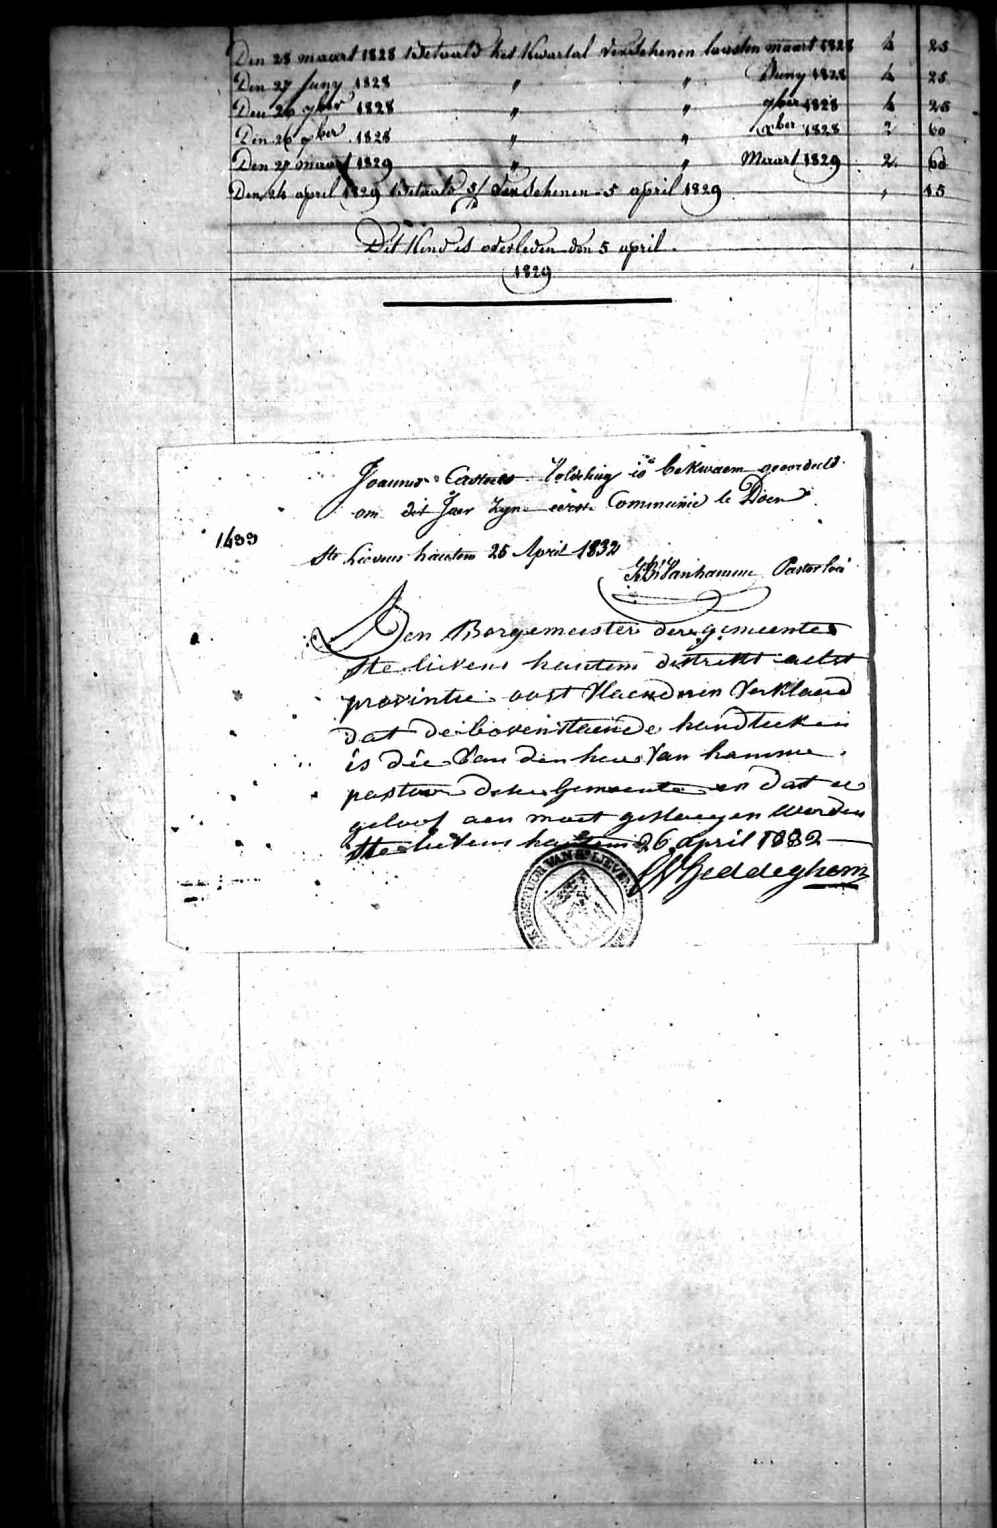 Den 28 maart 1828 Betaald het Kwartal verschenen lasten maart 1828 4 25
Den 27 Juny 1828 " " Juny 1828 4 25
Den 26 7ber 1828 " " 7ber 1828 4 25
Den 26 ber 1828 " " xber 1828 2 60
Den 27 maart 1829 " " Maart 1829 2 60
Den 24 april 1829 Betaald verschenen 5 april 1829 " 15
Dit Kind is overleden den 5 april
1829
Joannes is bekwaem geoordeelt
om dit Jaer zyn eerste Communie te Doen
Ste Lievens hautem 25 April 1832
Vanhamme Pastor loci
Den Borgemeester der gemeente
Ste lievens hautem distrikt aelst
provintie oost Vlaenderen Verklaerd
dat de bovenstaende handteeken
is die van den heer Van hamme
pastor deser Gemeente en dat er
geloof aen moet geslaegen worden
Ste lievens hautem 26 april 1832
BESTUUR VAN St LIEVENS